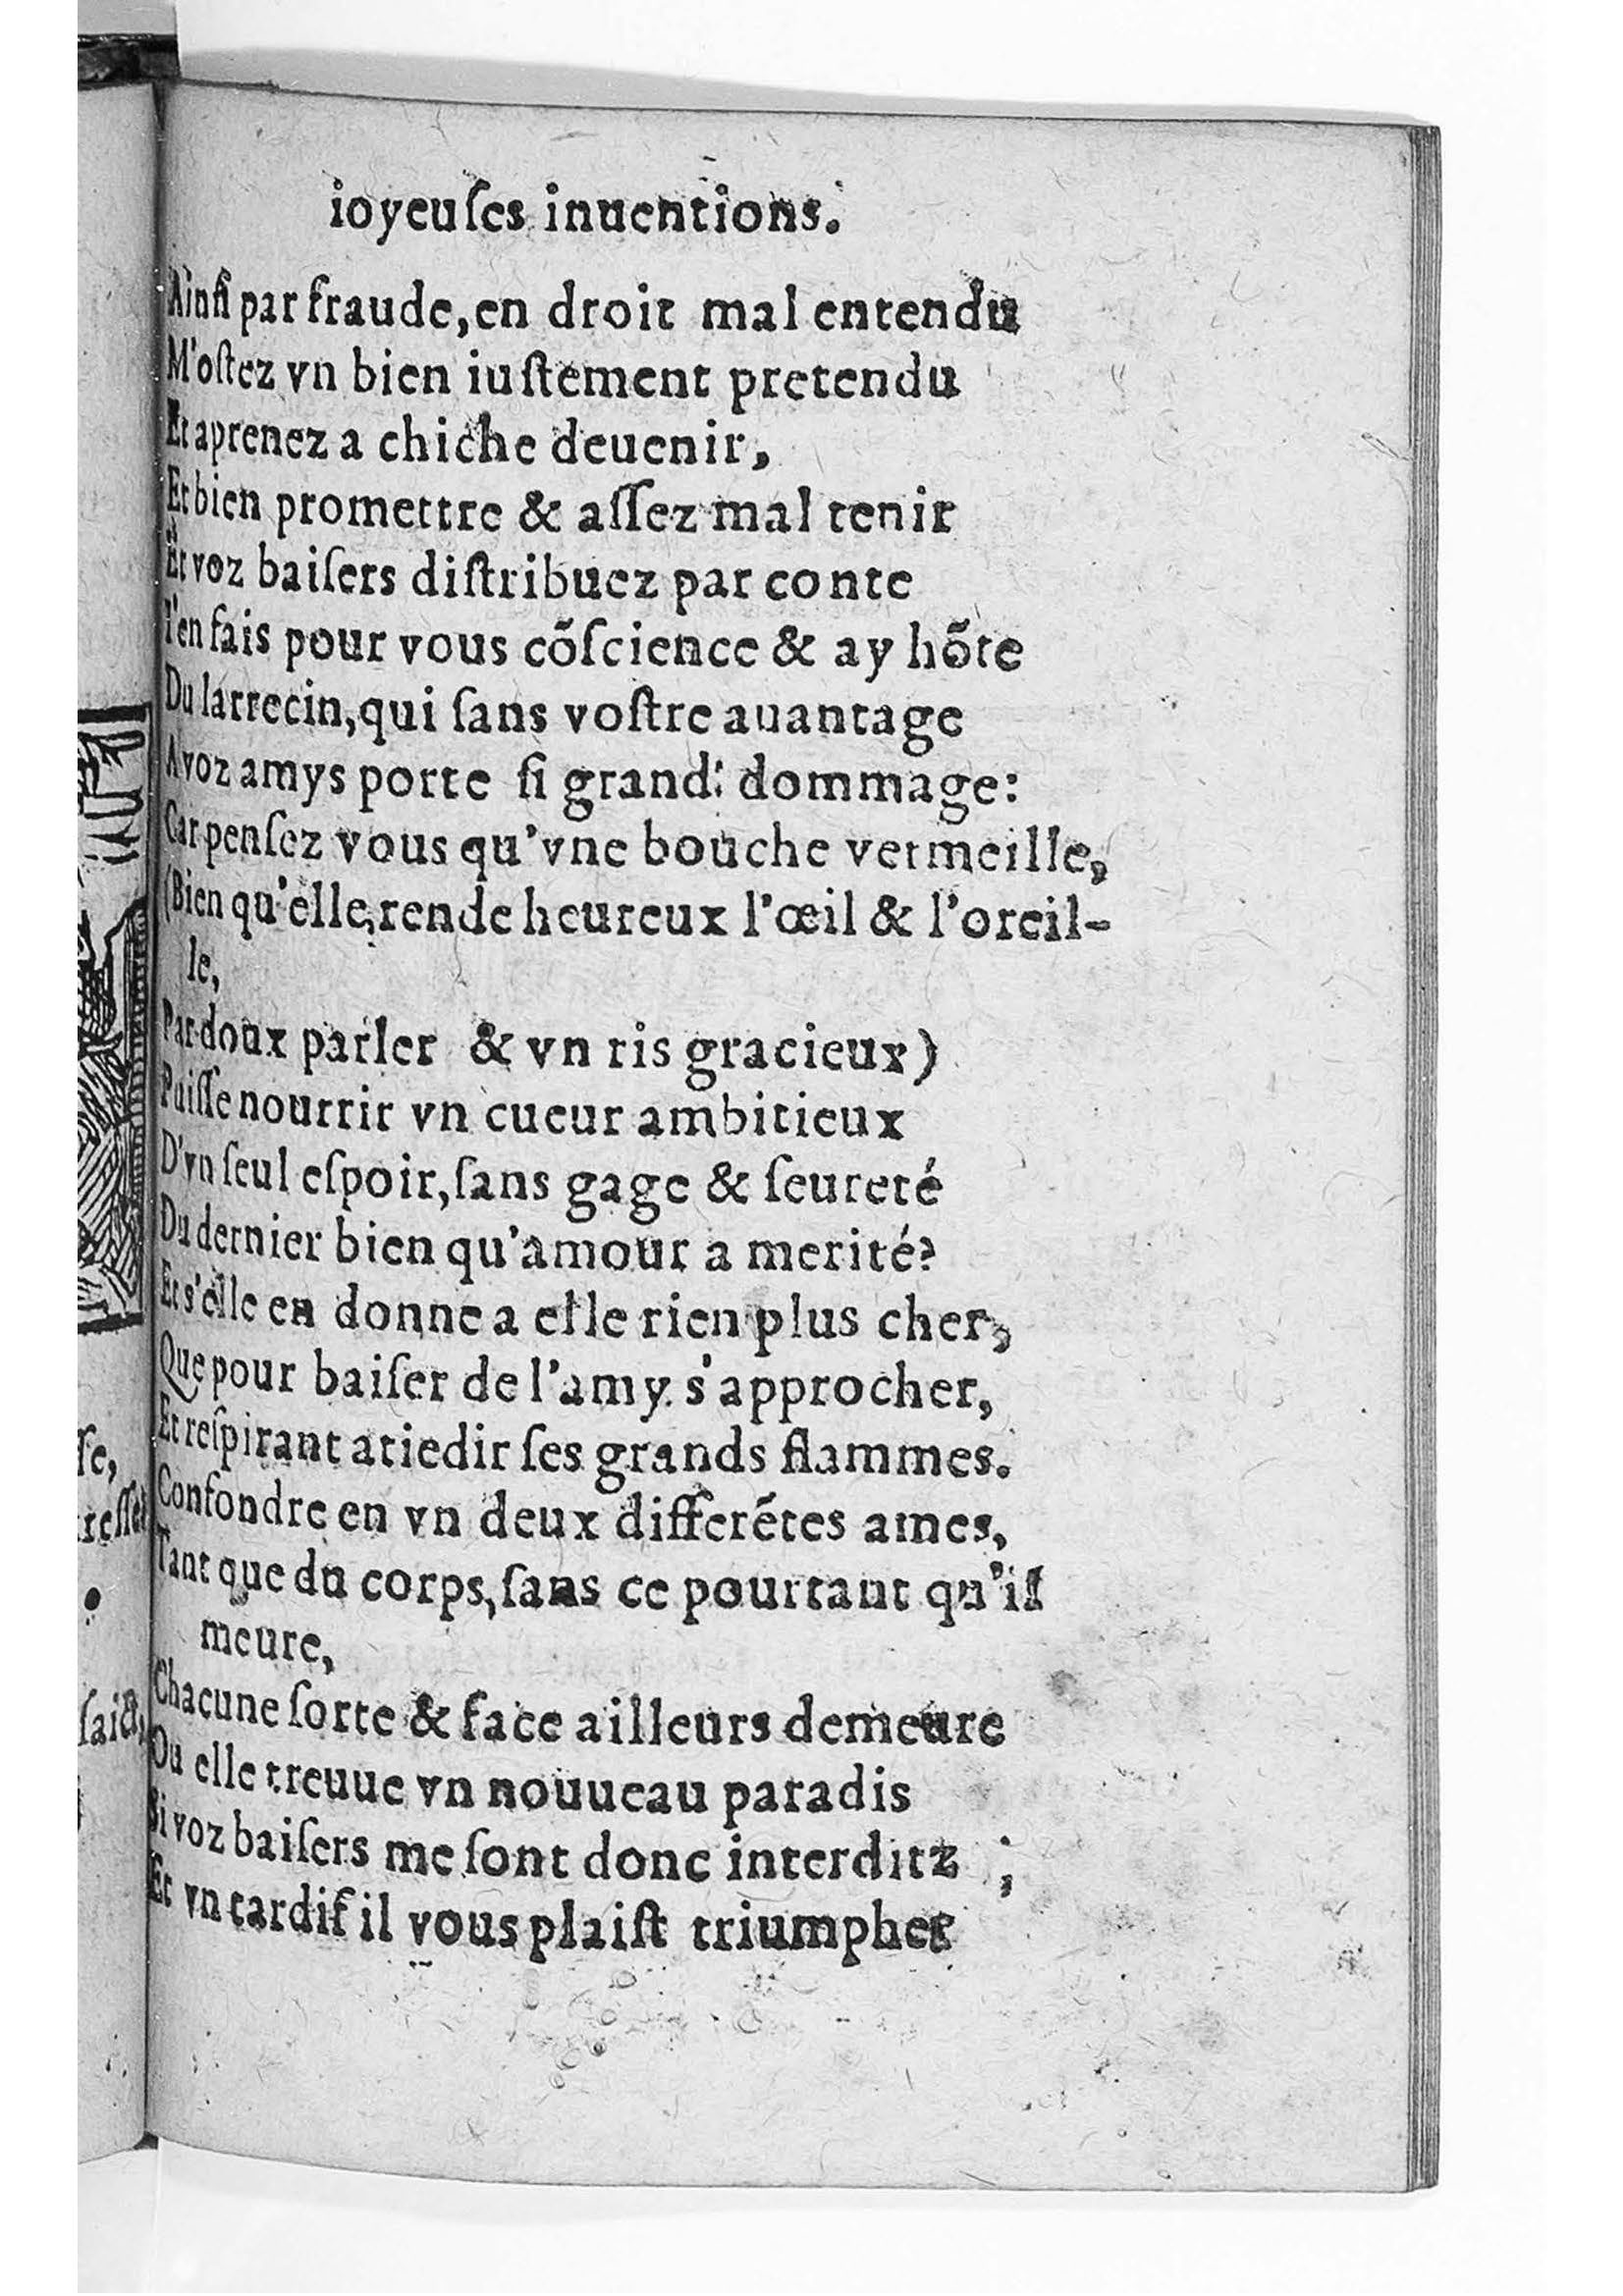 ioyeuſes inuentions.
Ainſi par fraude, en droit mal entendu
M'oſtez vn bien iuſtement pretendu
Et aprenez a chiche deuenir,
Et bien promettre & aſſez mal tenir
Et voz baiſers diſtribuez par conte
I'en fais pour vous cõſcience & ay hõte
Du larrecin, qui ſans voſtre auantage
A voz amys porte ſi grand: dommage:
Car penſez vous qu'vne bouche vermeille,
(Bien qu'elle, rende heureux l'œil & l'oreil-
le,
Par doux parler & vn ris gracieux)
Puiſſe nourrir vn cueur ambitieux
D'vn ſeul eſpoir, ſans gage & ſeureté
Du dernier bien qu'amour a merité?
Et s'elle en donne a elle rien plus cher,
Que pour baiſer de l'amy s'approcher,
Et reſpirant atiedir ſes grands flammes.
Confondre en vn deux differẽtes ames,
Tant que du corps, ſans ce pourtant qu'il
meure,
Chacune ſorte & face ailleurs demeure
Ou elle treuue vn nouueau paradis
Si voz baiſers me ſont donc interditz ;
Et vn tardif il vous plaiſt triumpher
ſe,
reſſer
.
ſaict,